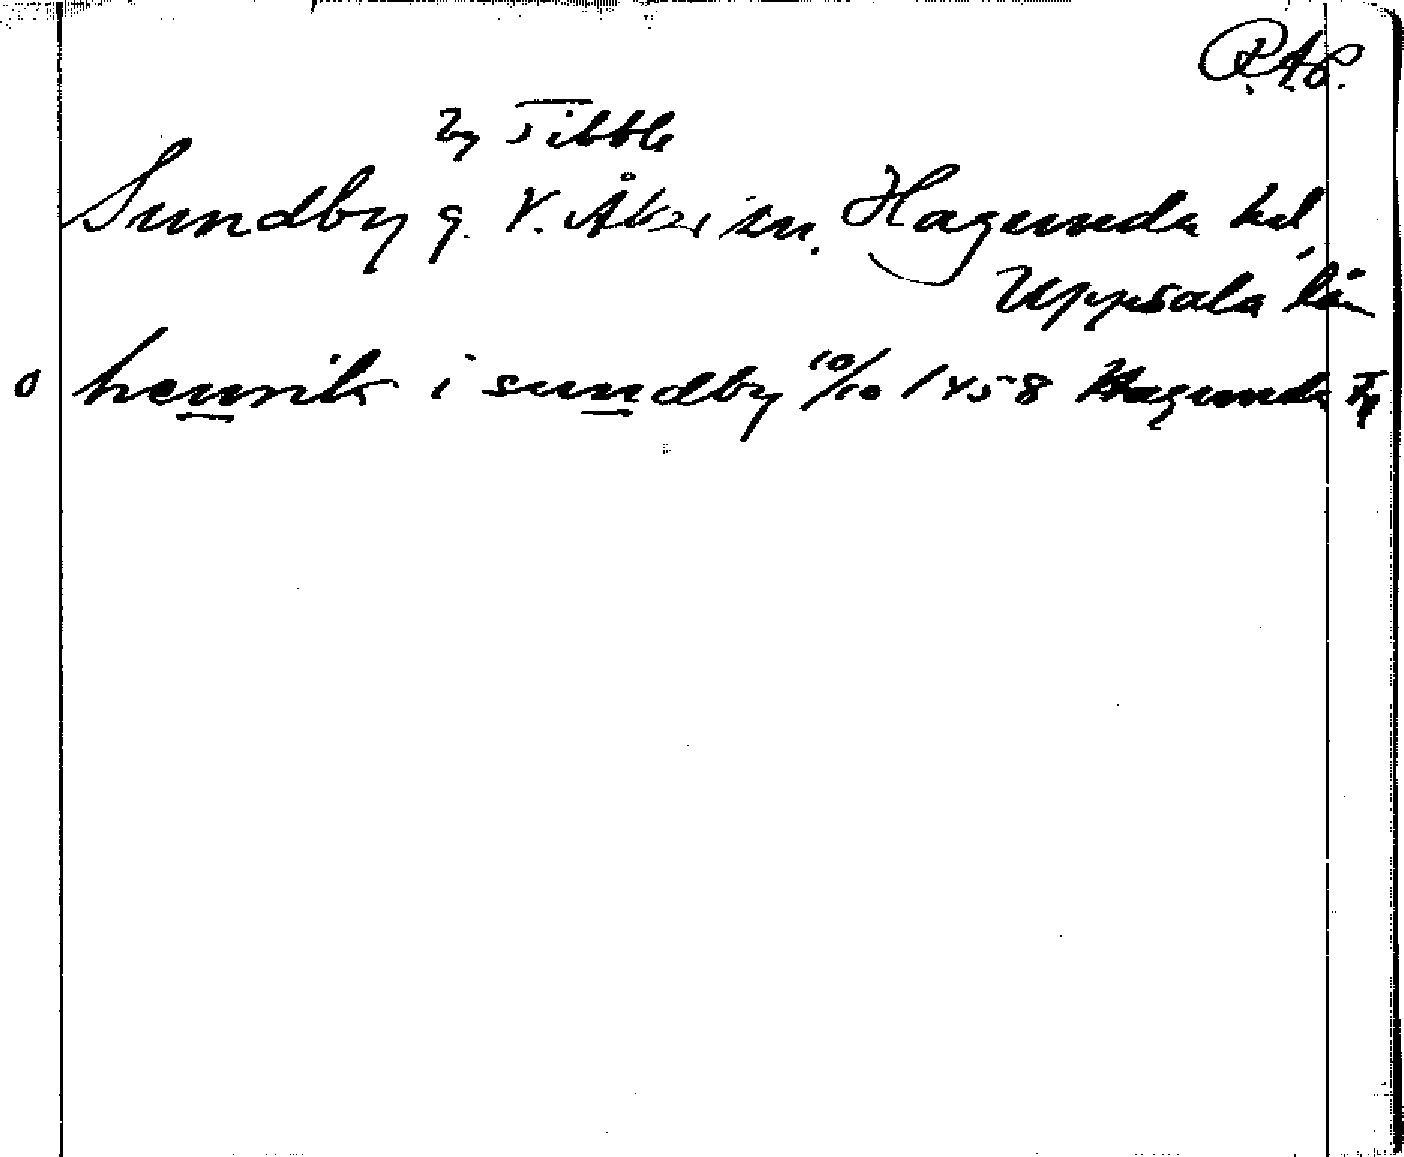 R.A.P.
By Tibble
Sundby g. V. Åkers sn. Hagunda hd,
Uppsala län
o henrik i sundby 10/10 1458 Hagunda Fp